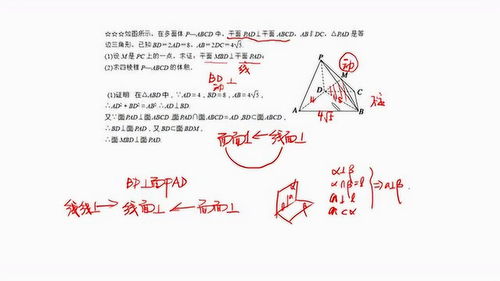 ☆☆☆如图所示，在多面体 P—ABCD 中，平面 PAD⊥平面 ABCD，AB∥DC，△PAD 是等
边三角形，已知 BD=2AD=8，AB=2DC=4√5.
(1)设 M 是 PC 上的一点，求证：平面 MBD⊥平面 PAD；
线
(2)求四棱锥 P—ABCD 的体积.
BD⊥
动
P
动
M
D
C
4
8
A
B
4√5
(1)证明 在△ABD 中，∵AD=4，BD=8，AB=4√5，
∴AD²+BD²=AB² ∴AD⊥BD.
又∵面 PAD⊥面 ABCD，面 PAD∩面 ABCD=AD，BD⊂面 ABCD，
∴BD⊥面 PAD，又 BD⊂面 BDM，
∴面 MBD⊥面 PAD.
面面⊥←线面⊥
BD⊥面PAD
线线⊥→线面⊥←面面⊥
α⊥β
α∩β=l
a⊥l
a⊂α
⇒a⊥β